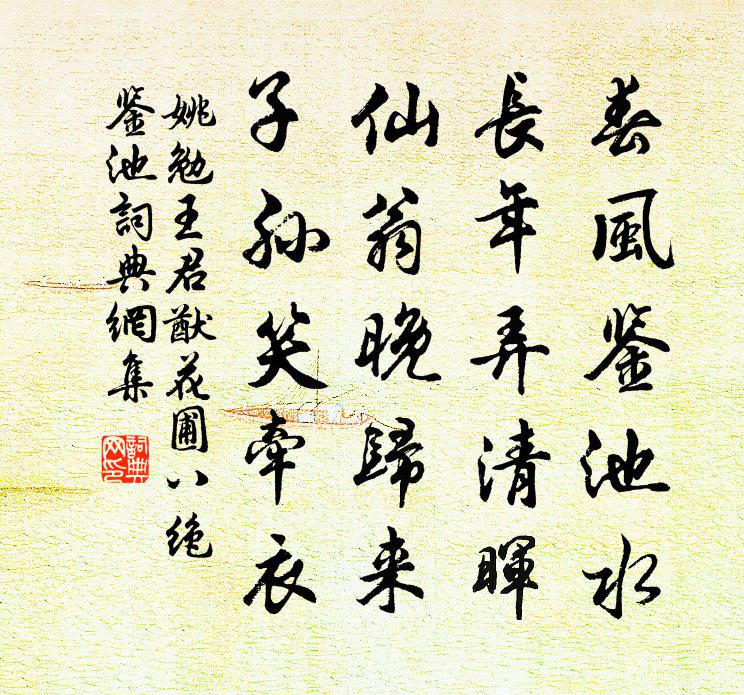 春風鉴池水
長年弄清暉
仙翁晚歸来
子孫笑牽衣
姚勉王君猷花圃八绝
鉴池詞典網集
詞典
网印